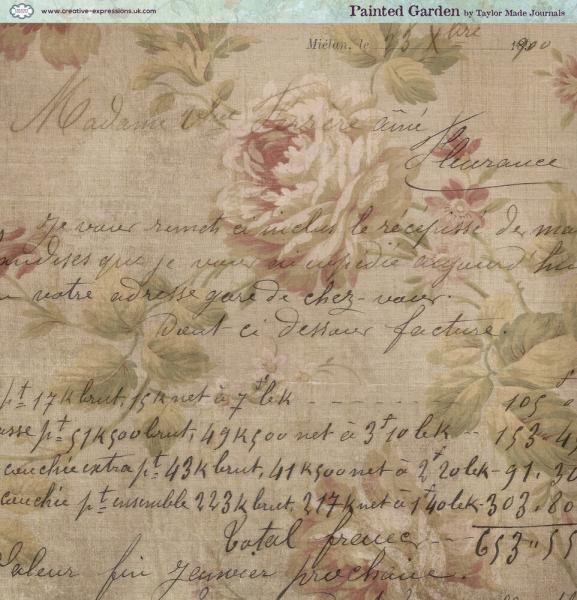 www.creative-expressions.uk.com
Painted Garden by Taylor Made Journals
Miélan, le 23 Xbre 1900
Madame Vve Ferrère aîné
Fleurance
Je vous remets ci inclus le récépissé de ma
andises que je vous ai expédié aujourd'hui
votre adresse gare de chez-vous.
Dont ci dessous facture.
pt 17k brut, 15k net à 7f le k - - - 105 0
asse pt= 51k500 brut, 49k500 net à 3f10 le k -- 153-45
couchie extra pt= 43k brut, 41k500 net à 2f20 le k - 91.30
couchie pt= ensemble 223k brut, 217k net à 1f40 le k - 303.80
Total francs --- 653-55
Valeur fin Janvier prochain.